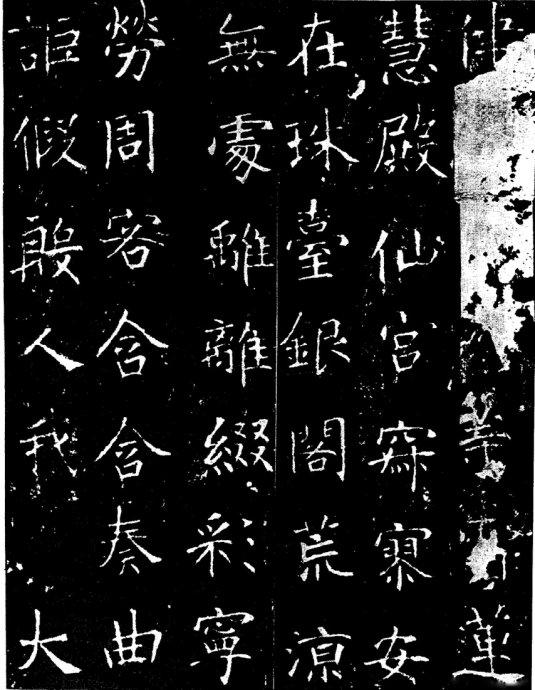 等蓮
慧殿仙宮寂寥安
在珠臺銀閣荒涼
無處離離綴彩寧
勞周客含含奏曲
詎假殷人我大